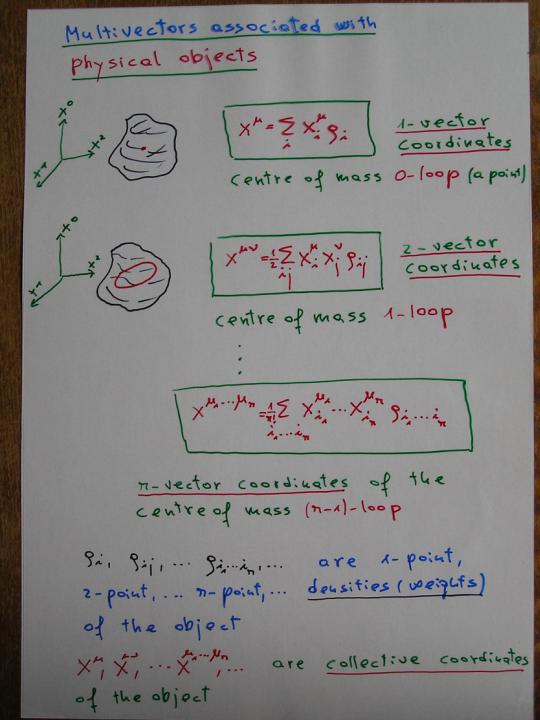 Multivectors associated with
physical objects
X⁰
X²
X¹
X^μ = Σ_i X_i^μ ρ_i
1-vector
coordinates
centre of mass 0-loop (a point)
X⁰
X²
X¹
X^{μν} = 1/2 Σ_{ij} X_i^μ X_j^ν ρ_{ij}
2-vector
coordinates
centre of mass 1-loop
⋮
X^{μ₁...μₙ} = 1/n! Σ_{i₁...iₙ} X_{i₁}^{μ₁} ... X_{iₙ}^{μₙ} ρ_{i₁...iₙ}
n-vector coordinates of the
centre of mass (n-1)-loop
ρ_i, ρ_{ij}, ... ρ_{i₁...iₙ}, ... are 1-point,
2-point, ... n-point, ... densities (weights)
of the object
X^μ, X^{μν}, ... X^{μ₁...μₙ}, ... are collective coordinates
of the object